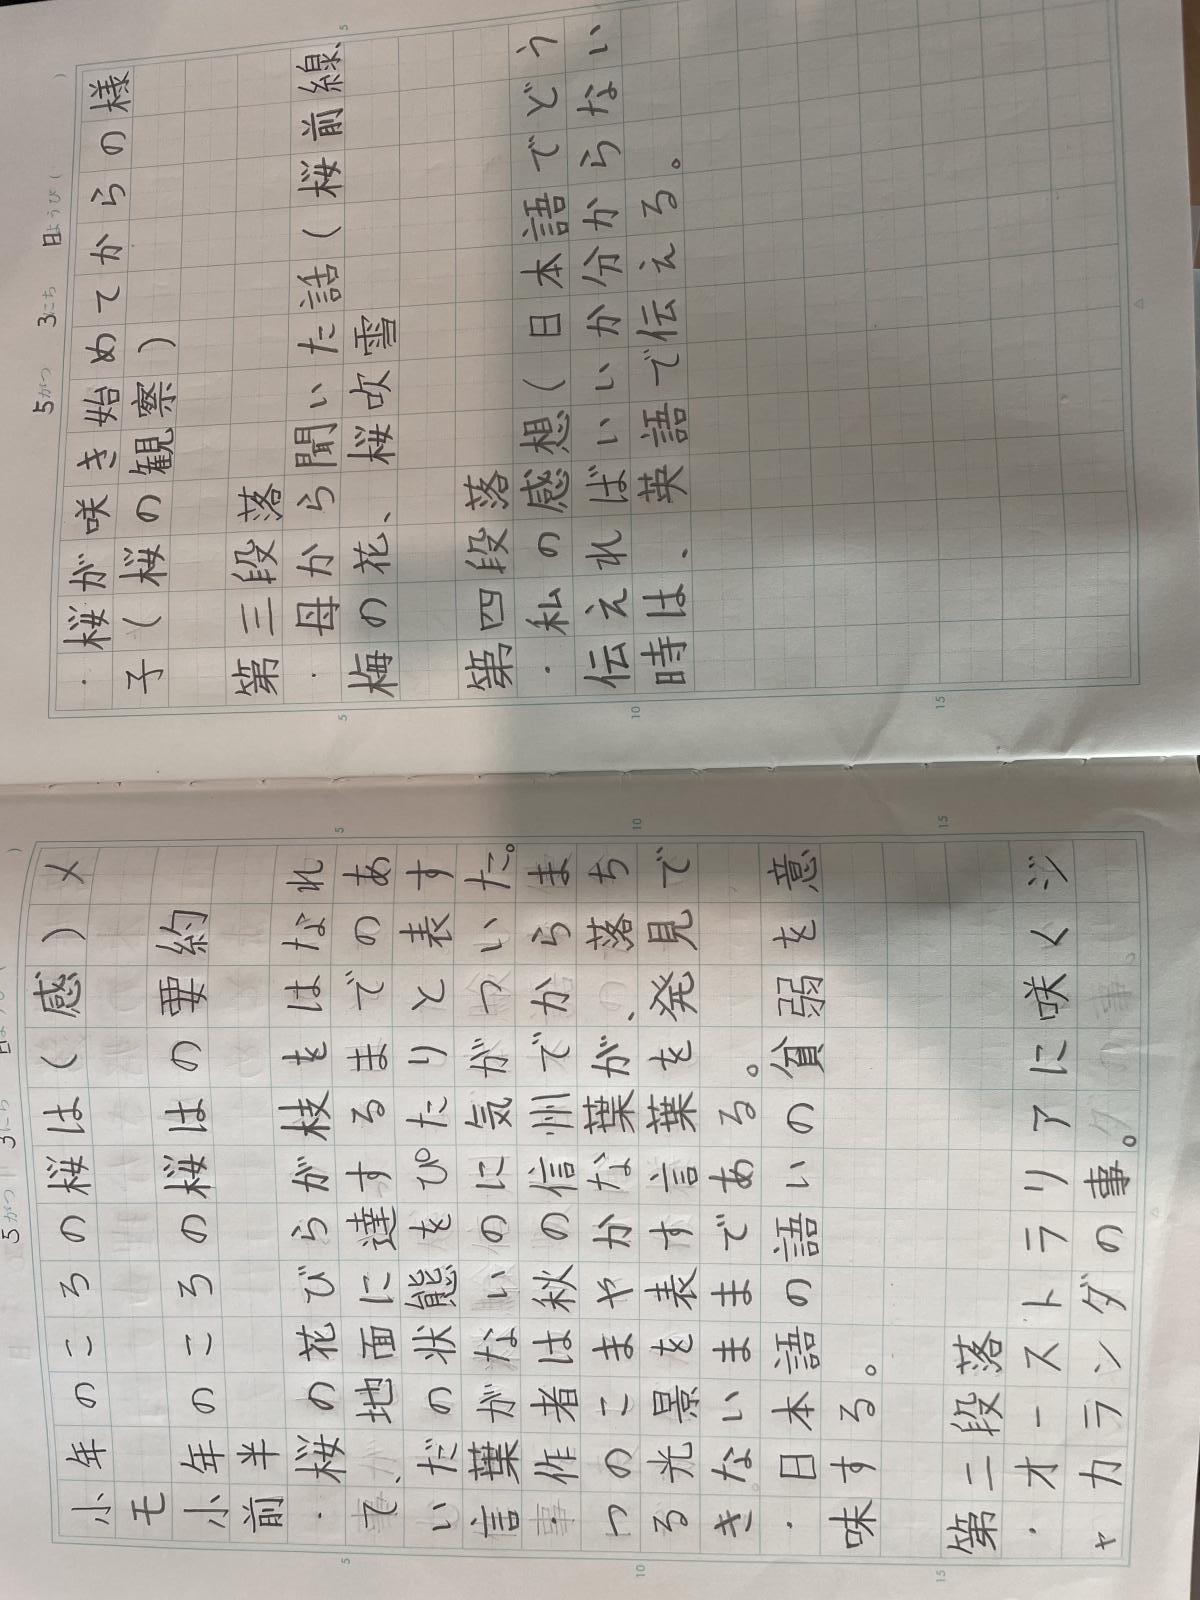 5がつ 3にち 日ようび ( )
小年のころの桜は(感)メ
モ
小年のころの桜はの要約
前半
・桜の花びらが枝をはなれ
て、地面に達するまでのあ
いだの状態をぴたりと表す
信葉がないのに気がついた。
・作者は秋の信州でからま
つのこまやかな葉が、落ち
る光景を表す言葉を発見で
きないままである。
・日本語の語いの貧弱を意
味する。
第二段落
・オーストラリアに咲くジ
ャカランダの事。
5
10
15
5がつ 3にち 日ようび ( )
・桜が咲き始めてからの様
子(桜の観察)
第三段落
・母から聞いた話(桜前線、
梅の花、桜吹雪
第四段落
・私の感想(日本語でどう
伝えればいいか分からない
時は、英語で伝える。
5
10
15